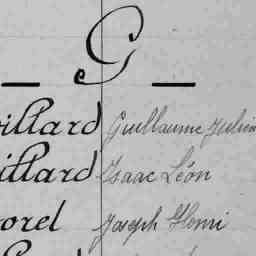 — G —
illard Guillaume Julien
illard Isaac Léon
orel Joseph Henri